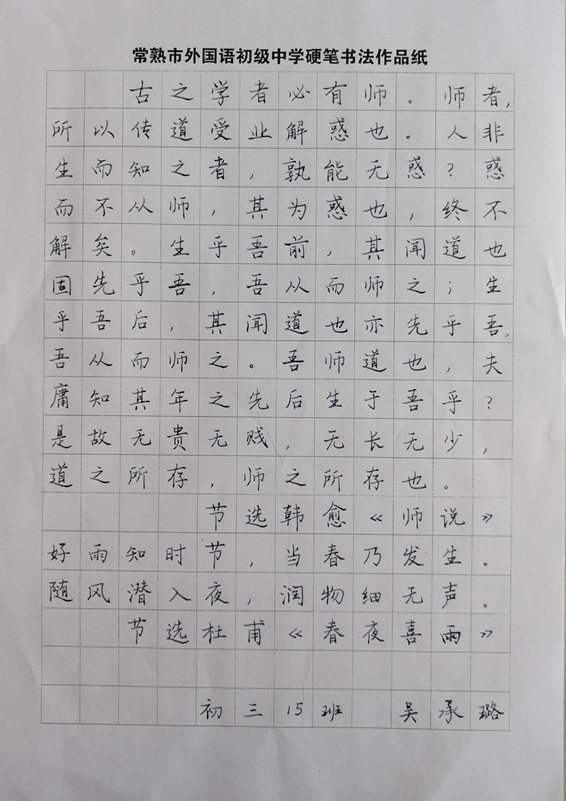 常熟市外国语初级中学硬笔书法作品纸
古之学者必有师。师者,
所以传道受业解惑也。人非
生而知之者,孰能无惑?惑
而不从师,其为惑也,终不
解矣。生乎吾前,其闻道也
固先乎吾,吾从而师之;生
乎吾后,其闻道也亦先乎吾,
吾从而师之。吾师道也,夫
庸知其年之先后生于吾乎?
是故无贵无贱,无长无少,
道之所存,师之所存也。
节选韩愈《师说》
好雨知时节,当春乃发生。
随风潜入夜,润物细无声。
节选杜甫《春夜喜雨》
初三15班 吴承璐